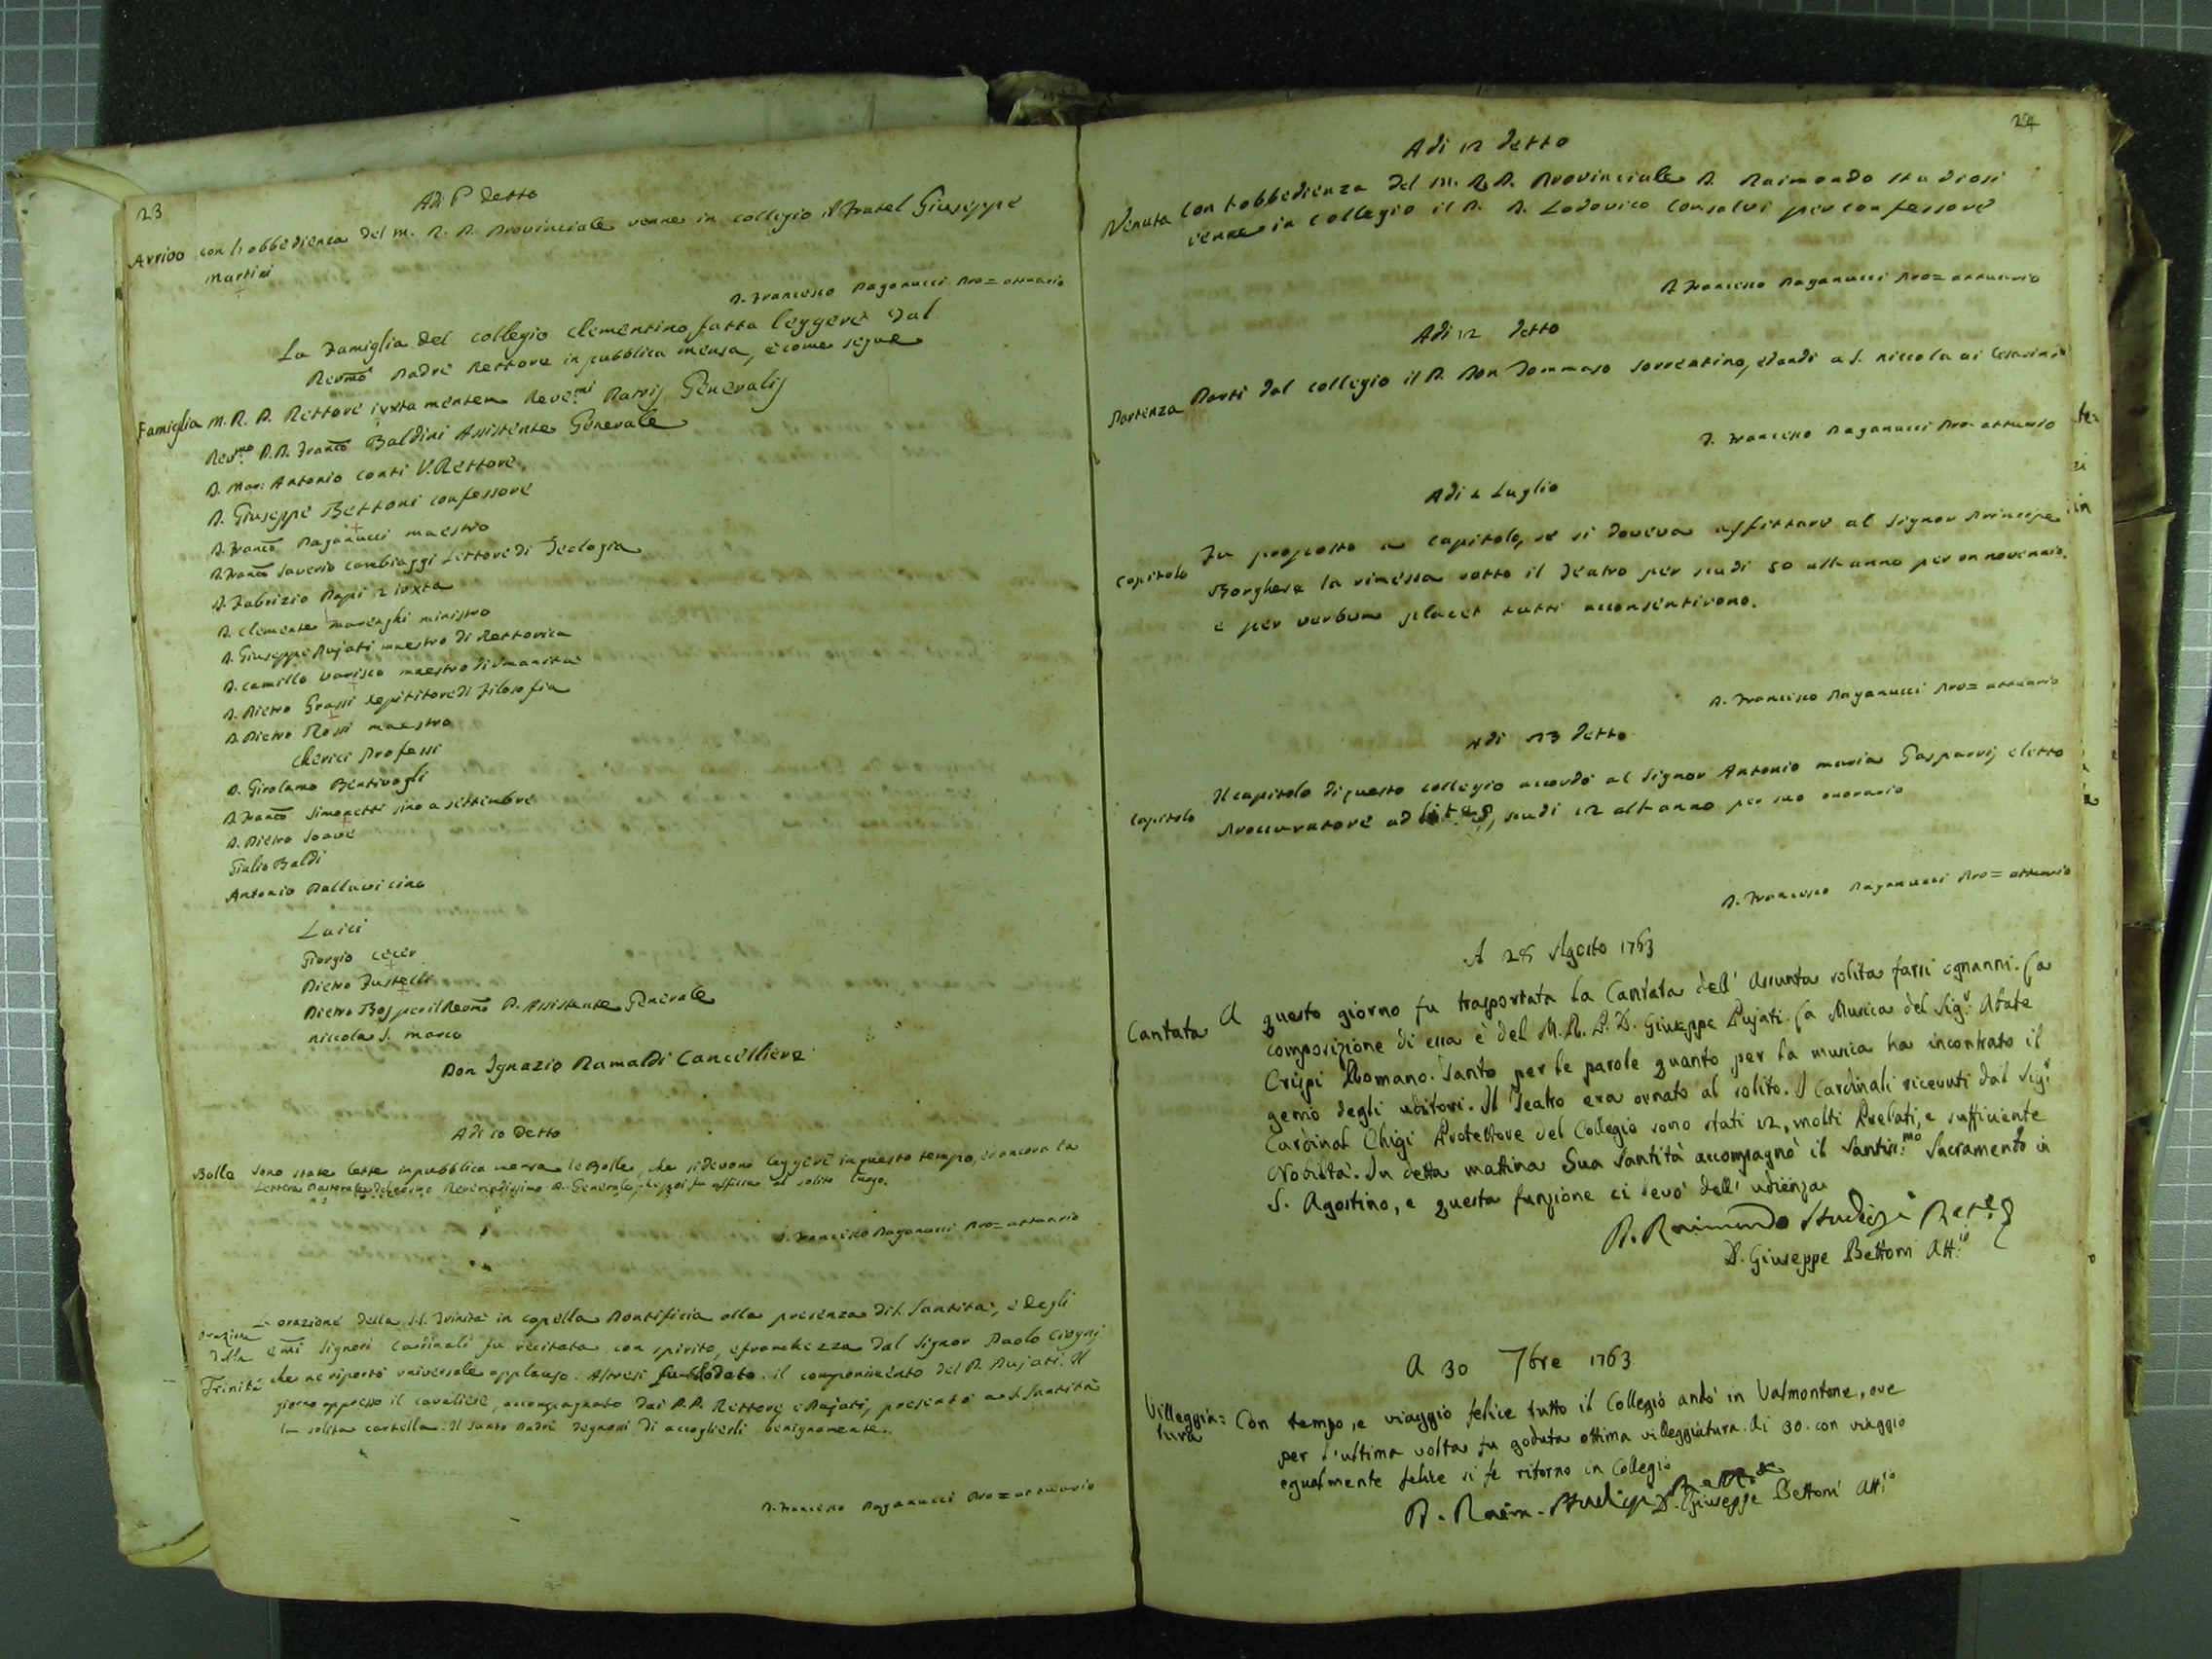 23
Adi P detto
Arrivo con l'obbedienza del M. R. P. Provinciale venne in collegio il Fratel Giuseppe
Martini
D. Francesco Paganucci Pro=attuario
La Famiglia del collegio Clementino, fatta leggere dal
Revmo Padre Rettore in pubblica mensa, è come segue
Famiglia M. R. P. Rettore iuxta mentem Revemi Patris Generalis
Revmo P. D. Franco Baldini Assistente Generale
D. Mar: Antonio Conti V. Rettore.
D. Giuseppe Bettoni confessore
D. Franco Paganucci maestro
D. Franco Saverio Cambiaggi Lettore di Teologia
D. Fabrizio Papi iuxta
D. Clemente Marenghi ministro
D. Giuseppe Pujati maestro di Rettorica
D. Camillo Varisco maestro di umanità
D. Pietro Grassi repititore di Filosofia
D. Pietro Rossi maestro
Cherici Professi
D. Girolamo Bentivogli
D. Franco Simonetti sino a settembre
D. Pietro Soave
Giulio Baldi
Antonio Pallavicino
Laici
Giorgio Cecer
Pietro Fustelli
Pietro Bos per il Revmo P. Assistente Generale
Niccola S. Marco
Don Ignazio Ramaldi Cancelliere
Adi 10 detto
Bolle Sono state lette in pubblica mensa le Bolle, che si devono leggere in questo tempo, ed ancora la
Lettera Pastorale del Reverendissimo P. Generale, che poi fu affissa al solito luogo.
D. Francesco Paganucci Pro=attuario
Orazione L'orazione della S.S. Trinità in capella Pontificia alla presenza di S. Santità, e degli
della Emi Signori Cardinali fu recitata con spirito, e franchezza dal Signor Paolo Cicogni
Trinità che ne riportò universale applauso. Altresì fu lodato il componimento del P. Pujati. Il
giorno appresso il cavaliere, accompagnato dai P.P. Rettore e Pujati, presentò a S. Santità
la solita cartella. Il Santo Padre degnossi di accoglierli benignamente.
D. Francesco Paganucci Pro=attuario
24
Adi 12 detto
Venuta Con l'obbedienza del M. R. P. Provinciale D. Raimondo Studiosi
venne in collegio il P. D. Lodovico Consalvi per confessore
D. Francesco Paganucci Pro=attuario
Adi 12 detto
Partenza Partì dal collegio il P. Don Tommaso Sorrentino, ed andò a S. Niccola ai Cesarini
D. Francesco Paganucci Pro=attuario
Adi 2 Luglio
Capitolo Fu proposto a capitolo, se si doveva affittare al Signor Principe
Borghese la rimessa sotto il Teatro per scudi 50 all'anno per un novennio.
e per verbum placet tutti acconsentirono.
D. Francesco Paganucci Pro=attuario
Adi 13 detto
Capitolo Il capitolo di questo collegio accordò al Signor Antonio Maria Gasparrij eletto
Proccuratore ad lites, scudi 12 all'anno per suo onorario
D. Francesco Paganucci Pro=attuario
A 28 Agosto 1763
Cantata A questo giorno fu trasportata la Cantata dell' Assunta solita farsi ognanni. La
composizione di essa è del M. R. P. D. Giuseppe Pujati. La Musica del Sigr Abate
Crispi Romano. Tanto per le parole quanto per la musica ha incontrato il
genio degli uditori. Il Teatro era ornato al solito. I Cardinali ricevuti dal Sigr
Cardinal Chigi Protettore del Collegio sono stati 12, molti Prelati, e sufficiente
Nobiltà. In detta mattina Sua Santità accompagnò il Santismo Sacramento in
S. Agostino, e questa funzione ci levò dell' udienza
D. Raimondo Studiosi Rete
D. Giuseppe Bettoni Attio
A 30 7bre 1763
Villeggia= Con tempo, e viaggio felice tutto il Collegio andò in Valmontone, ove
tura per l'ultima volta fu goduta ottima villeggiatura. Ai 30. con viaggio
egualmente felice si fe ritorno in Collegio
D. Raim. Studiosi Rettore
D. Giuseppe Bettoni Attio